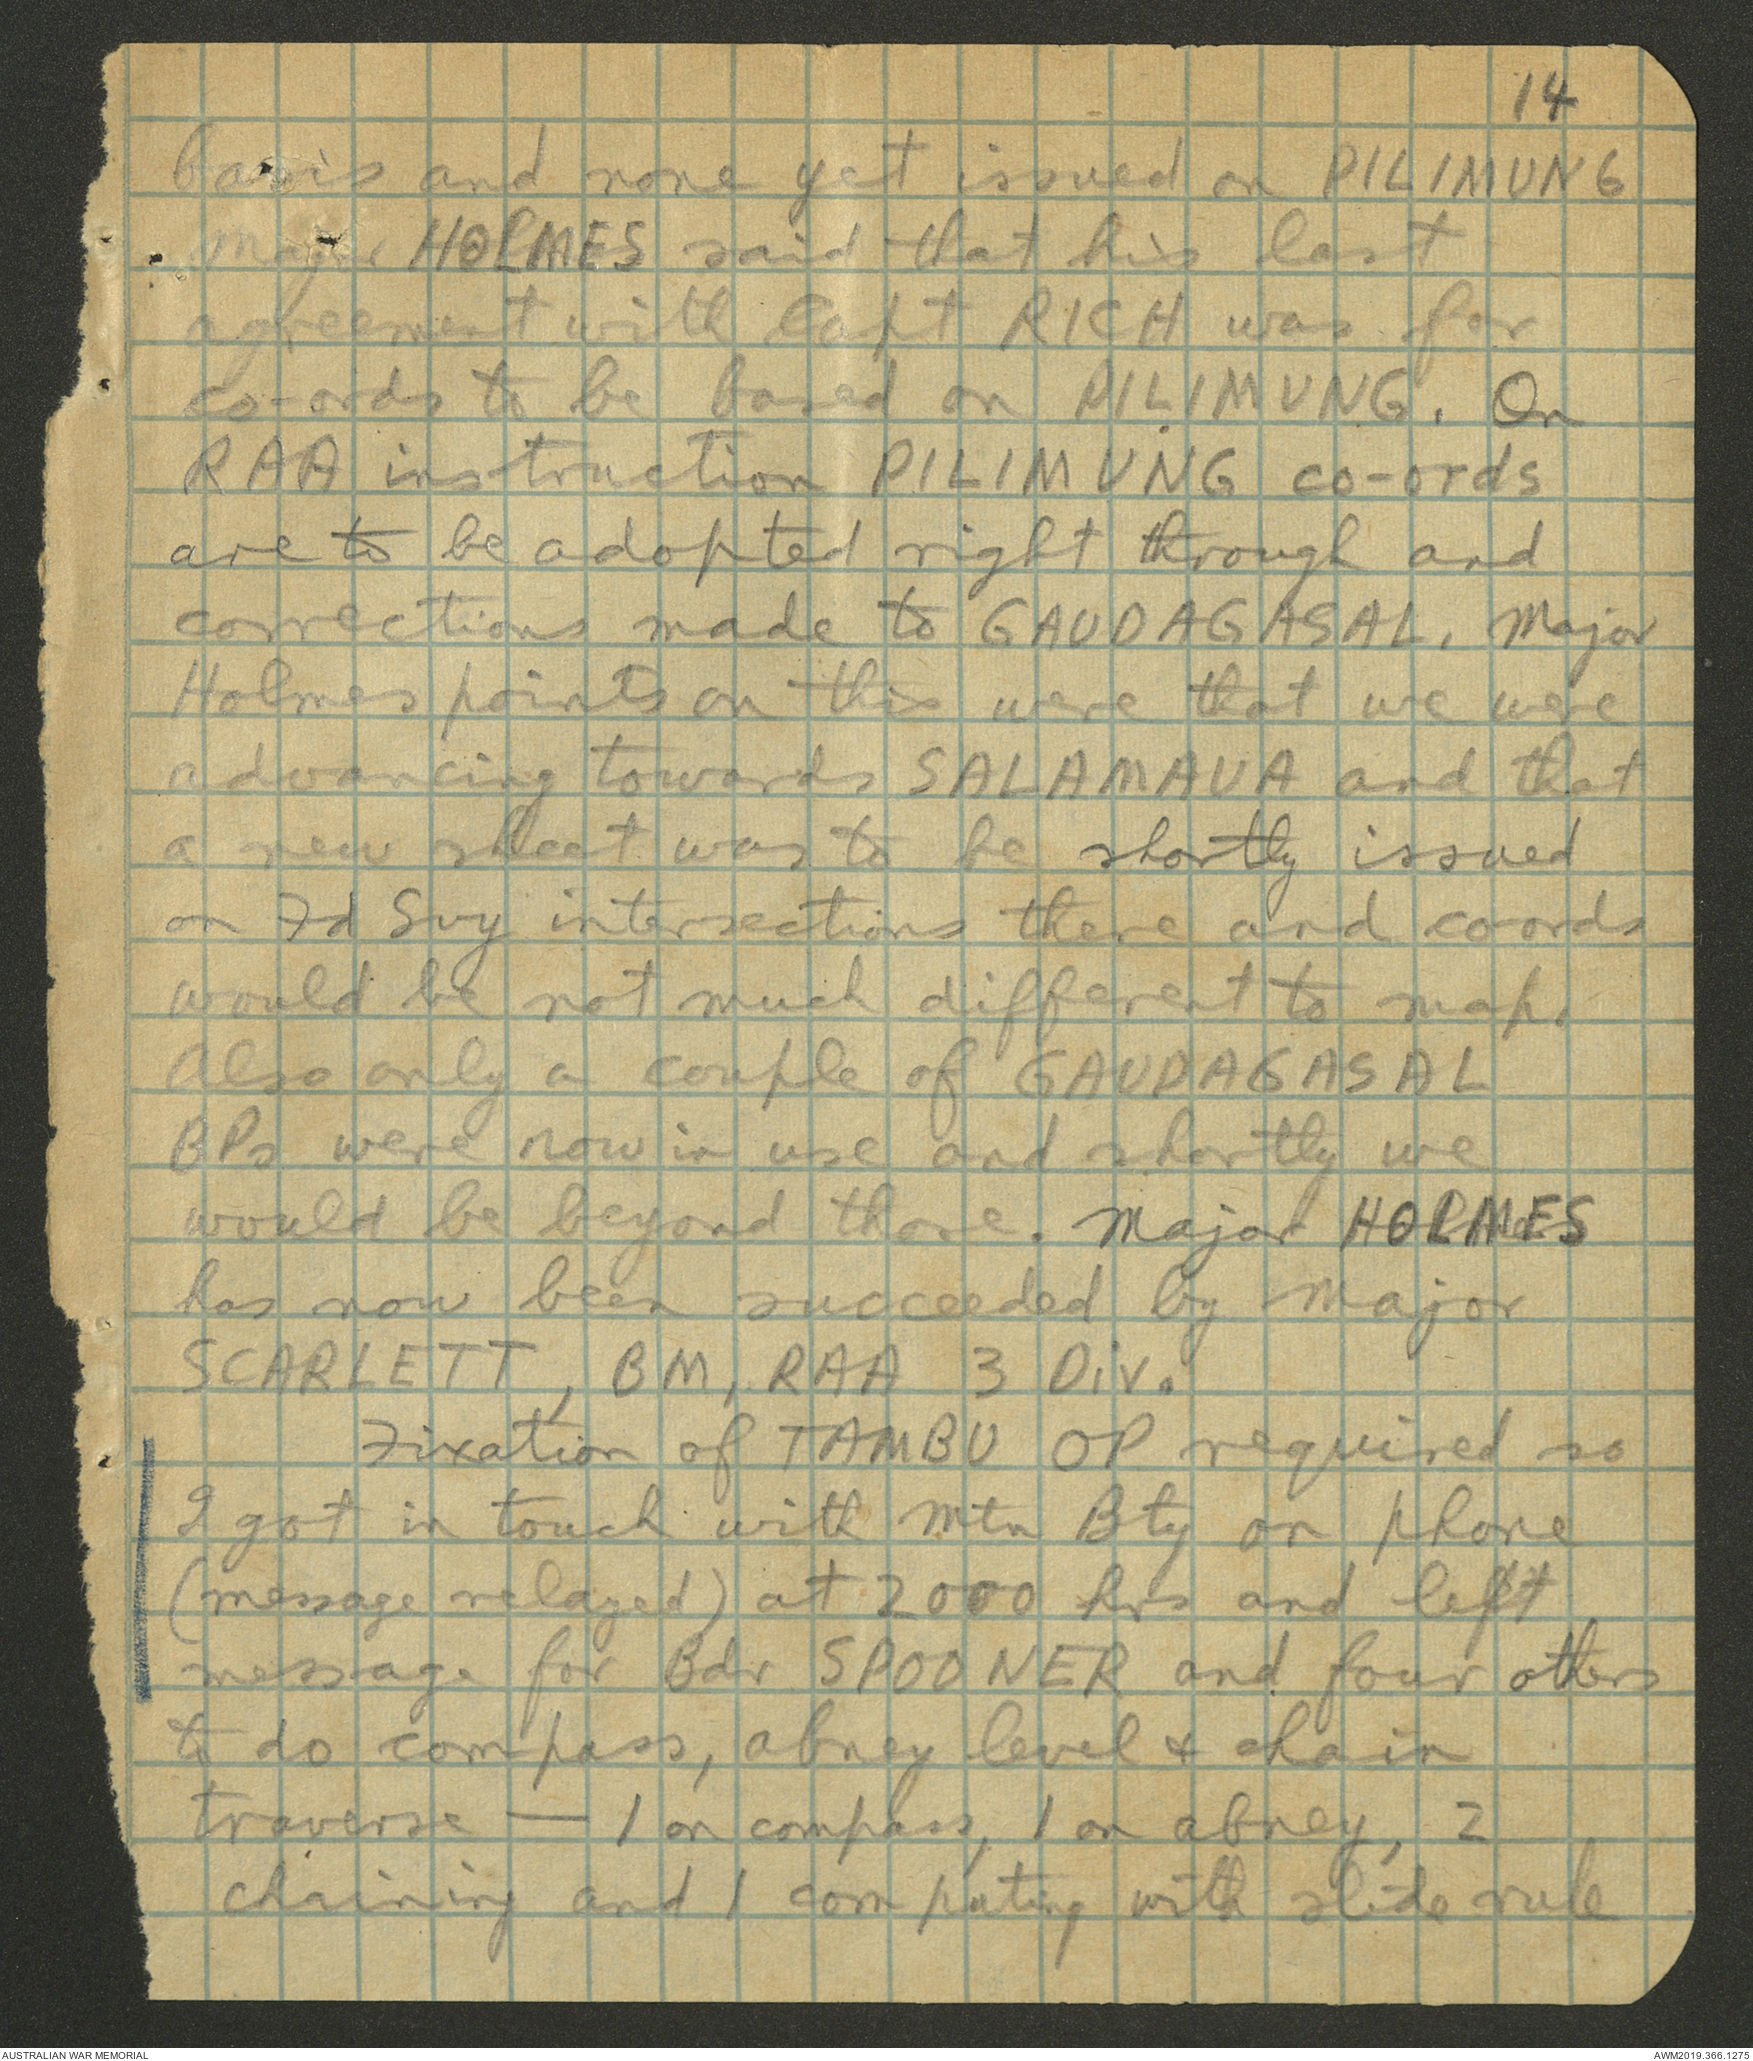 14
basis and none yet issued on PILIMUNG
Major HOLMES said that his last
agreement with Capt RICH was for
co-ords to be based on PILIMUNG. On
RAA instruction PILIMUNG co-ords
are to be adopted right through and
corrections made to GAUDAGASAL. Major
Holmes points on this were that we were
advancing towards SALAMAUA and that
a new sheet was to be shortly issued
on Fd Svy intersections there and co-ords
would be not much different to map.
Also only a couple of GAUDAGASAL
BPs were now in use and shortly we
would be beyond those. Major HOLMES
has now been succeeded by Major
SCARLETT, BM, RAA 3 Div.
Fixation of TAMBU OP required so
I got in touch with Mtn Bty on phone
(message relayed) at 2000 hrs and left
message for Bdr SPOONER and four others
to do compass, abney level & chain
traverse — 1 on compass, 1 on abney, 2
chaining and 1 computing with slide rule
AUSTRALIAN WAR MEMORIAL
AWM2019.366.1275